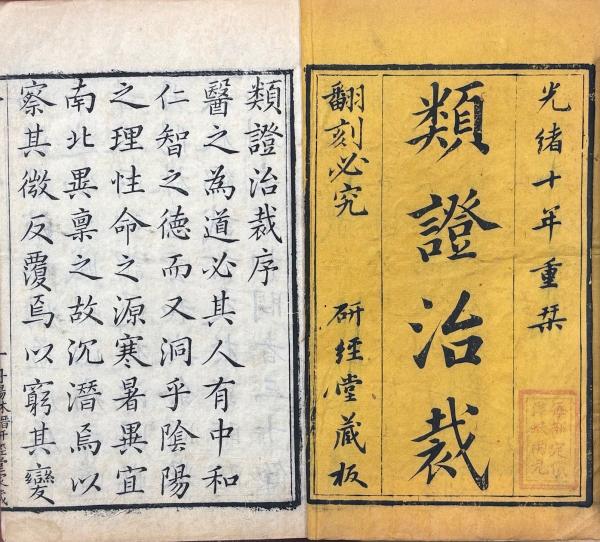 光緒十年重栞
類證治裁
翻刻必究
研經堂藏板
類證治裁序
醫之為道必其人有中和
仁智之德而又洞乎陰陽
之理性命之源寒暑異宜
南北異禀之故沉潛焉以
察其微反覆焉以窮其變